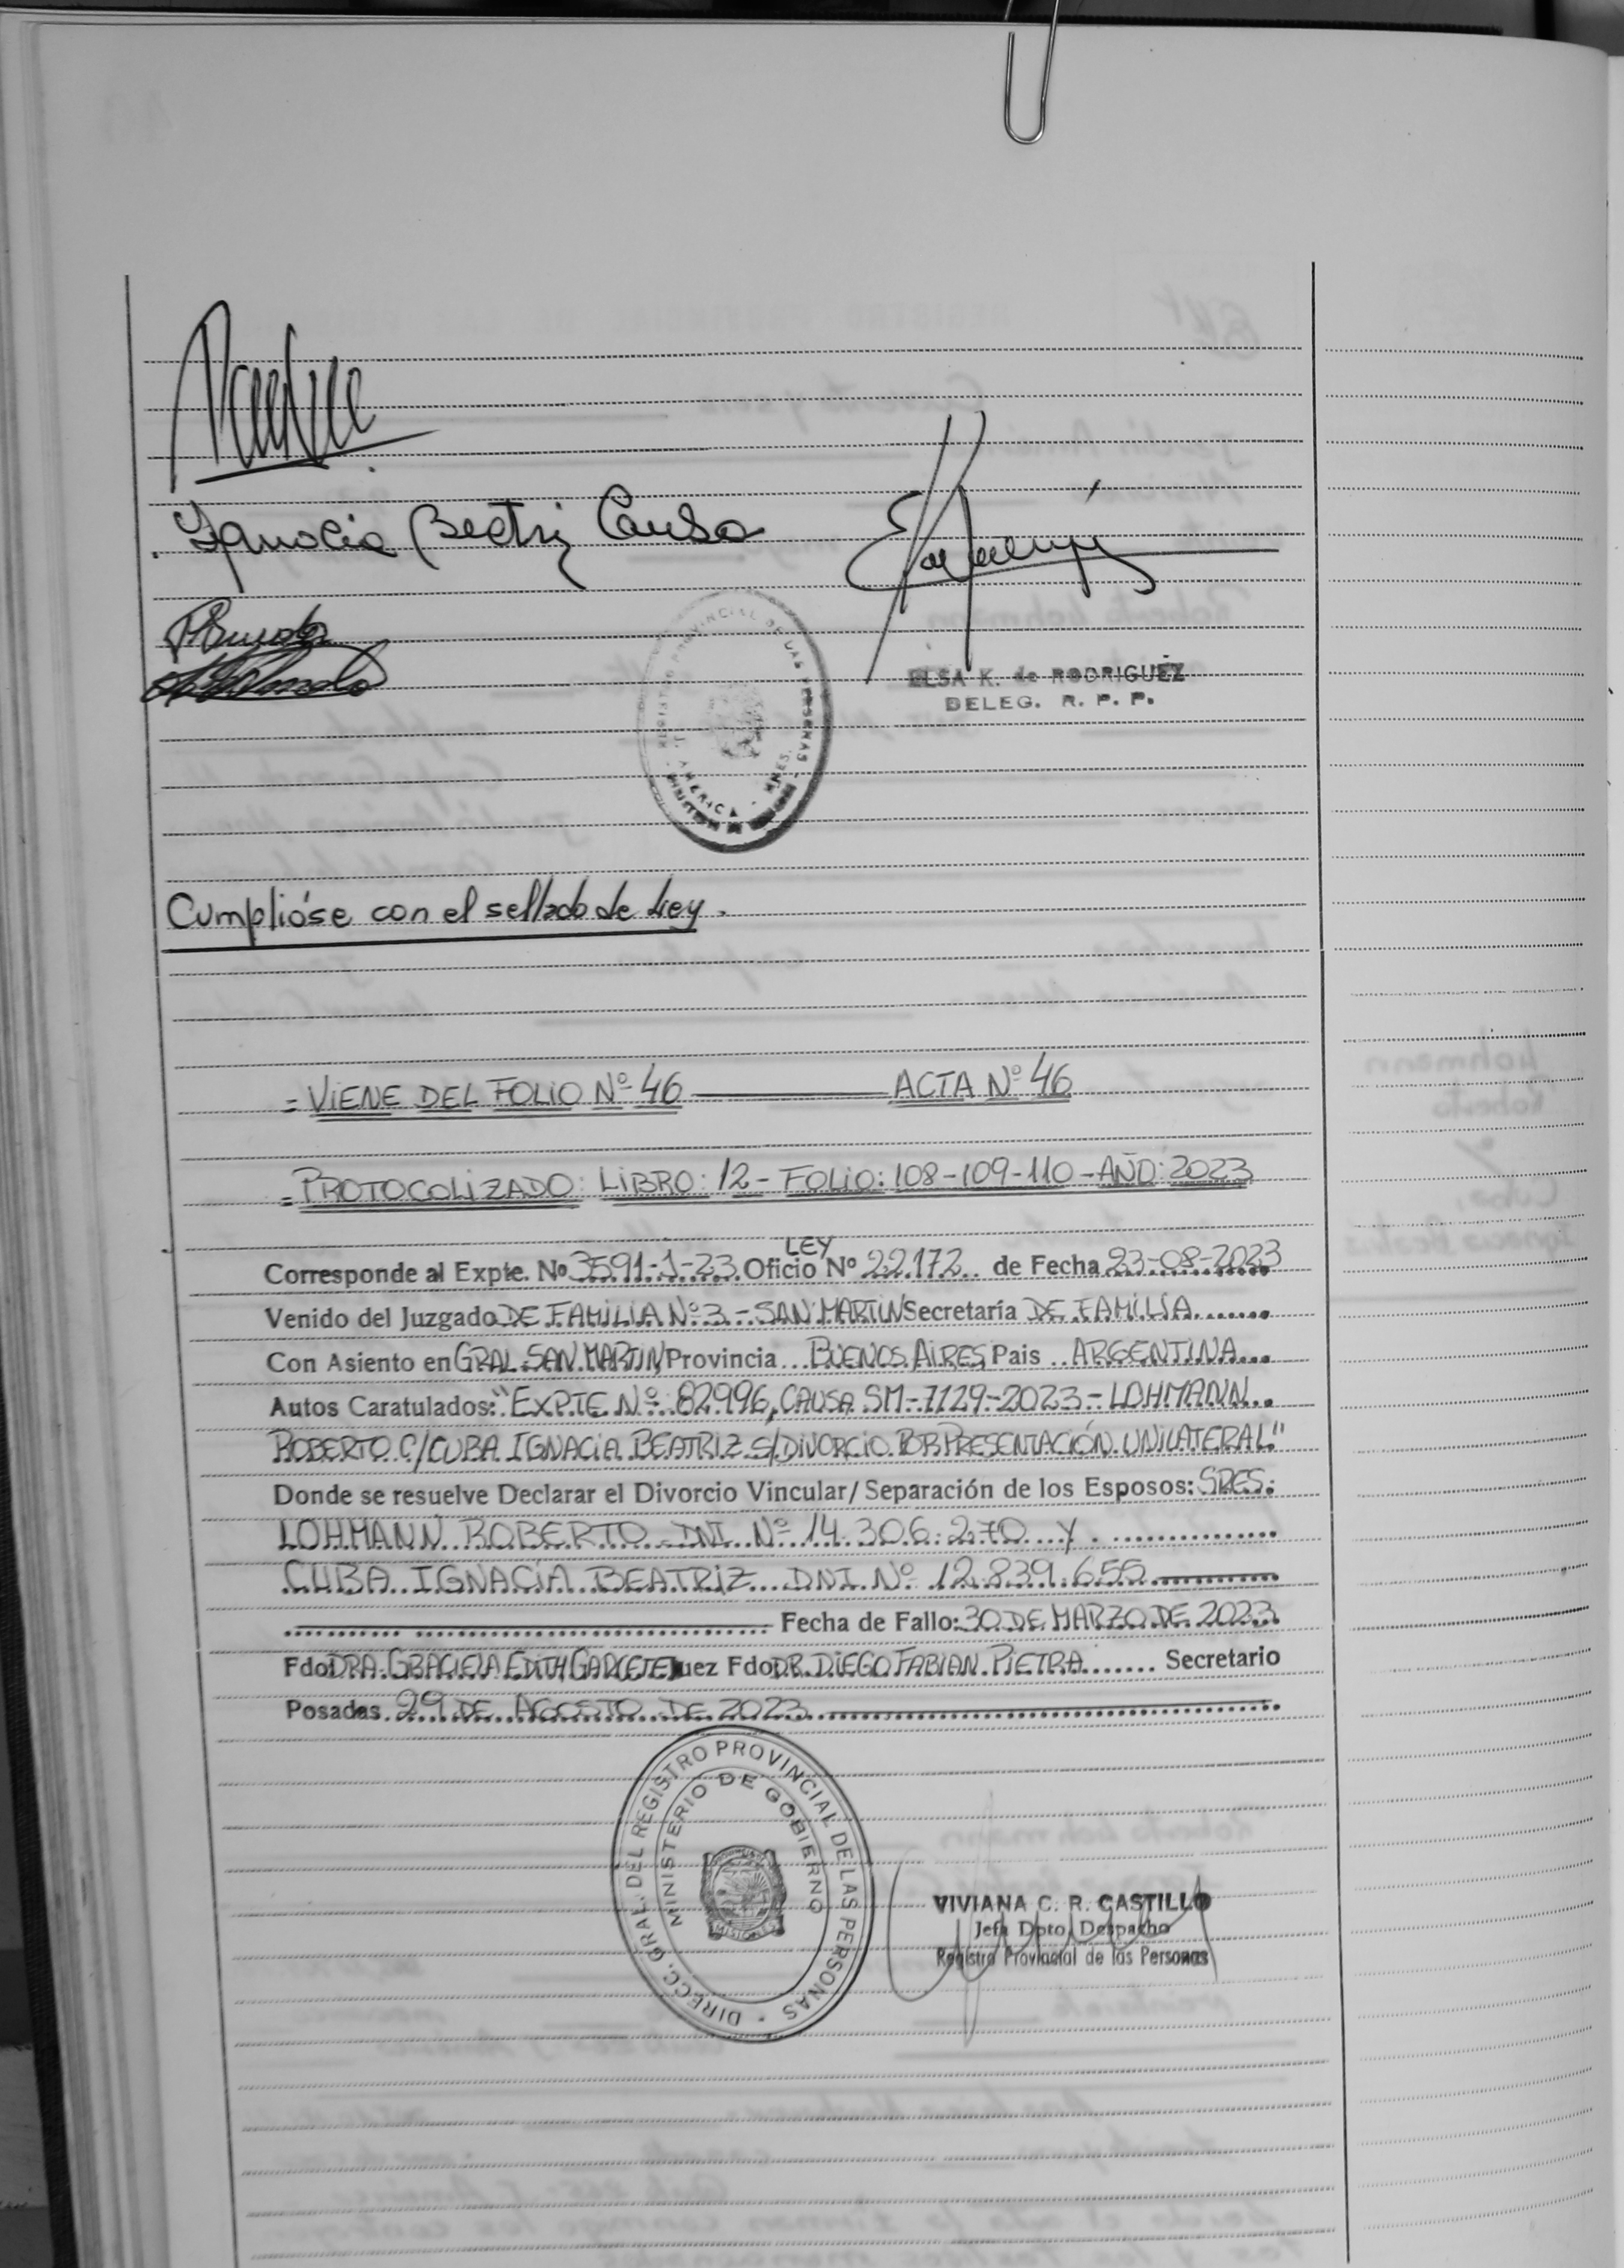 Ignacia Beatriz Cuba
REGISTRO PROVINCIAL DE LAS PERSONAS
AMERICA
ELSA K. de RODRIGUEZ
DELEG. R. P. P.
Cumplióse con el sellado de Ley.
= VIENE DEL FOLIO Nº 46 ACTA Nº 46
= PROTOCOLIZADO: LIBRO: 12 - FOLIO: 108-109-110 - AÑO: 2023
LEY
Corresponde al Expte. Nº 3591-1-23 Oficio Nº 22.172 de Fecha 23-08-2023
Venido del Juzgado DE FAMILIA Nº 3 - SAN MARTIN Secretaría DE FAMILIA
Con Asiento en GRAL. SAN MARTIN Provincia BUENOS AIRES Pais ARGENTINA
Autos Caratulados: "EXPTE Nº 82996, CAUSA SM-7129-2023 - LOHMANN
ROBERTO C/ CUBA IGNACIA BEATRIZ S/ DIVORCIO POR PRESENTACIÓN UNILATERAL"
Donde se resuelve Declarar el Divorcio Vincular/ Separación de los Esposos: SRES:
LOHMANN ROBERTO DNI Nº 14.306.270 Y
CUBA IGNACIA BEATRIZ DNI Nº 12.839.655
Fecha de Fallo: 30 DE MARZO DE 2023
Fdo DRA. GRACIELA EDITH GARCETE Juez Fdo DR. DIEGO FABIAN PIETRA Secretario
Posadas 29 DE AGOSTO DE 2023
DIRECC. GRAL. DEL REGISTRO PROVINCIAL DE LAS PERSONAS
MINISTERIO DE GOBIERNO
MISIONES
VIVIANA C. R. CASTILLO
Jefa Dpto. Despacho
Registro Provincial de las Personas